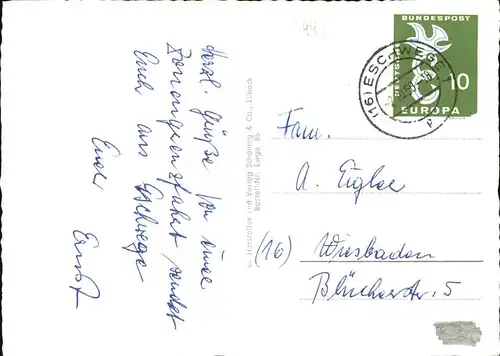 Herzl. Grüße von einer
Zonengrenzfahrt sendet
Euch aus Eschwege
Euer
Ernst
Hersteller und Verlag Schöning & Co., Lübeck
Bestell-Nr. Ewge 85
DEUTSCHE
BUNDESPOST
10
EUROPA
(16) ESCHWEGE
Fam.
A. Eigloe
(16) Wiesbaden
Blücherstr. 5